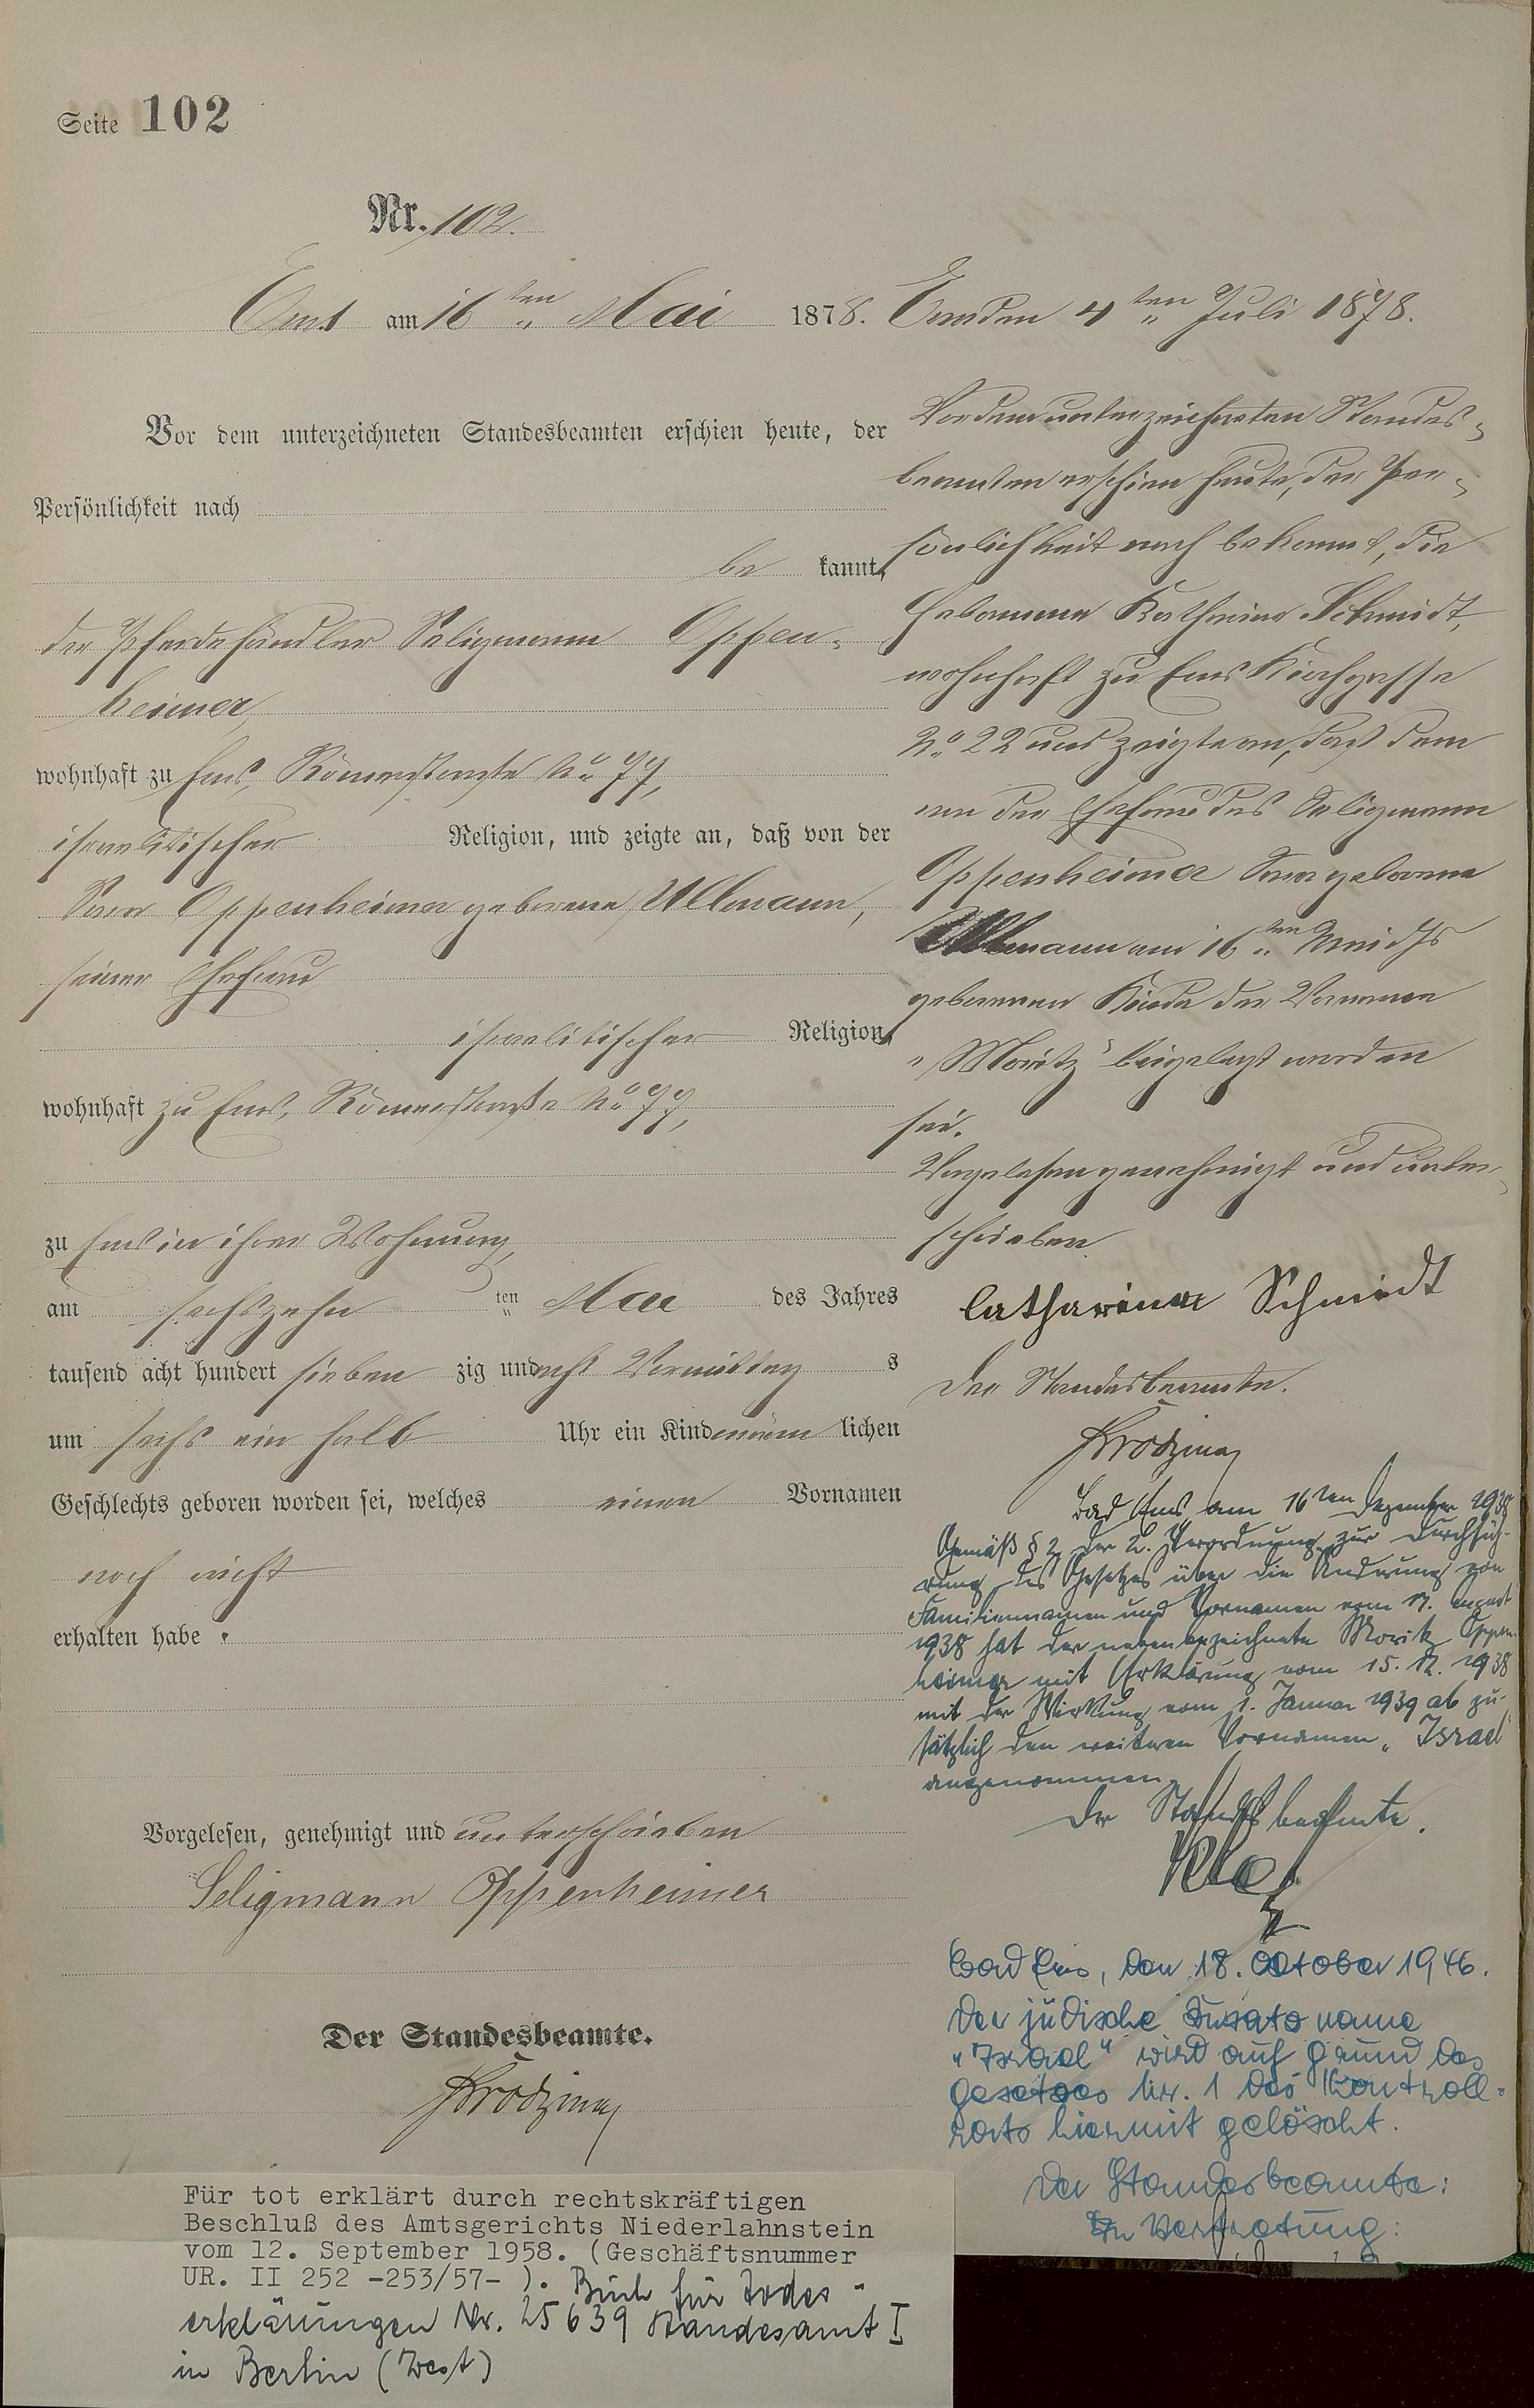 Seite 102
Nr. 102.
Ems am 16ten Mai 1878.
Vor dem unterzeichneten Standesbeamten erschien heute, der
Persönlichkeit nach
be kannt,
der Pferdehändler Seligmann Oppen-
heimer,
wohnhaft zu Ems, Römerstraße No 77,
israelitischer Religion, und zeigte an, daß von der
Sara Oppenheimer geborene Ullmann,
seiner Ehefrau
israelitischer Religion,
wohnhaft zu Ems, Römerstraße No 77,
zu Ems in ihrer Wohnung,
am sechszehn ten Mai des Jahres
tausend acht hundert sieben zig und acht Vormittag s
um sechs ein halb Uhr ein Kind männ lichen
Geschlechts geboren worden sei, welches einen Vornamen
noch nicht
erhalten habe.
Vorgelesen, genehmigt und unterschrieben
Seligmann Oppenheimer
Der Standesbeamte.
Für tot erklärt durch rechtskräftigen
Beschluß des Amtsgerichts Niederlahnstein
vom 12. September 1958. (Geschäftsnummer
UR. II 252 -253/57- ). Buch für Todes-
erklärungen Nr. 25639 Standesamt I
in Berlin (West)
Ems den 4ten Juli 1878.
Vor dem unterzeichneten Standes-
beamten erschien heute, der Per-
sönlichkeit nach bekannt, die
Hebamme Katharina Schmidt,
wohnhaft zu Ems Kirchgasse
No 22 und zeigte an, daß dem
von der Ehefrau des Seligmann
Oppenheimer Sara geborene
Ullmann am 16ten Mai d Js
geborenen Kinde der Vorname
"Moritz" beigelegt worden
sei.
Vorgelesen genehmigt und unter-
schrieben.
Catharina Schmidt
Der Standesbeamte.
Bad Ems am 16ten Dezember 1938
Gemäß § 2 der 2. Verordnung zur Durchfüh-
rung des Gesetzes über die Änderung von
Familiennamen und Vornamen vom 17. August
1938 hat der nebenbezeichnete Moritz Oppen-
heimer mit Erklärung vom 15. 12. 1938
mit der Wirkung vom 1. Januar 1939 ab zu-
sätzlich den weiteren Vornamen "Israel"
angenommen.
Der Standesbeamte.
Bad Ems, den 18. Oktober 1946.
Der jüdische Zusatzname
"Israel" wird auf Grund des
Gesetzes Nr. 1 des Kontroll-
rats hiermit gelöscht.
Der Standesbeamte:
In Vertretung: